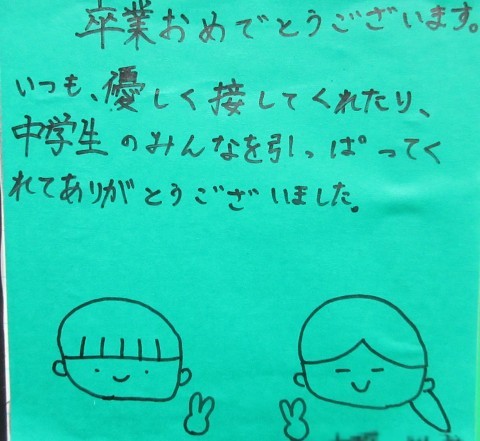 卒業おめでとうございます。
いつも、優しく接してくれたり、
中学生のみんなを引っぱってく
れてありがとうございました。